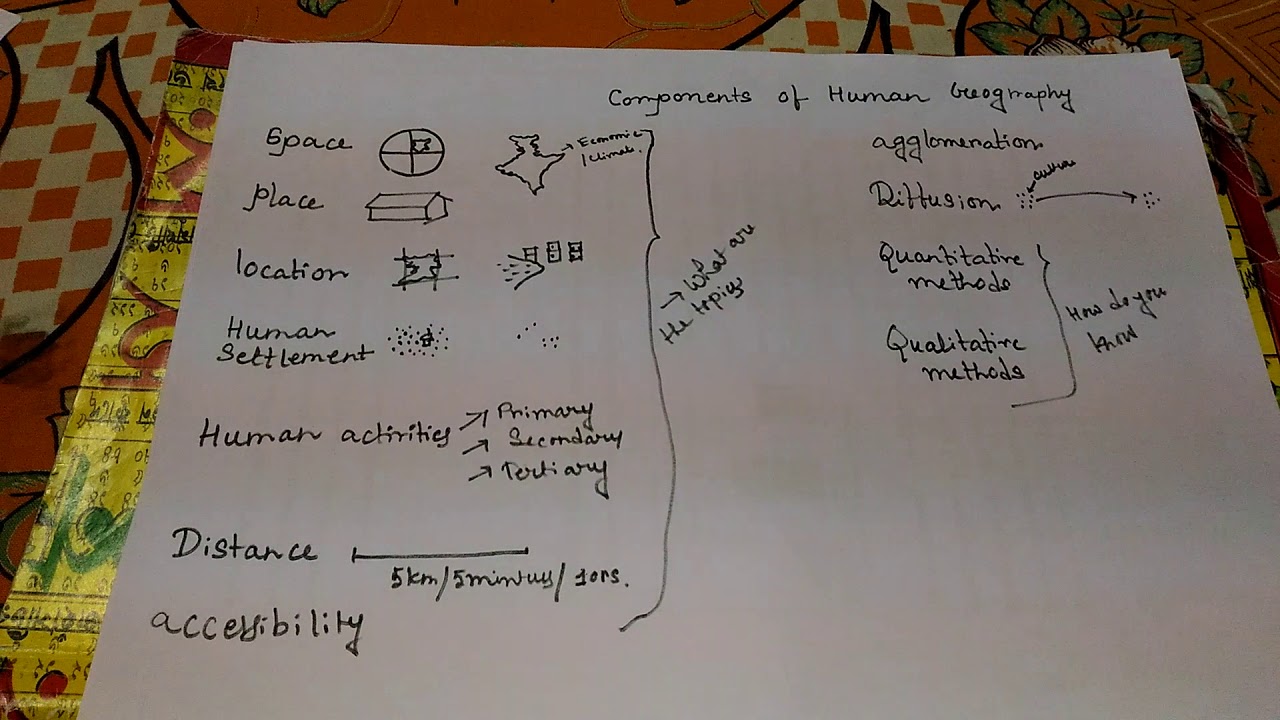 Components of Human Geography
Space
→ Economic
/Climate.
Place
location
Human
Settlement
Human activities
→ Primary
→ Secondary
→ Tertiary
Distance
5km/5minuts/ 10rs.
accessibility
→ What are
the topics
agglomeration
Diffusion
culture
Quantitative
methods
Qualitative
methods
How do you
know